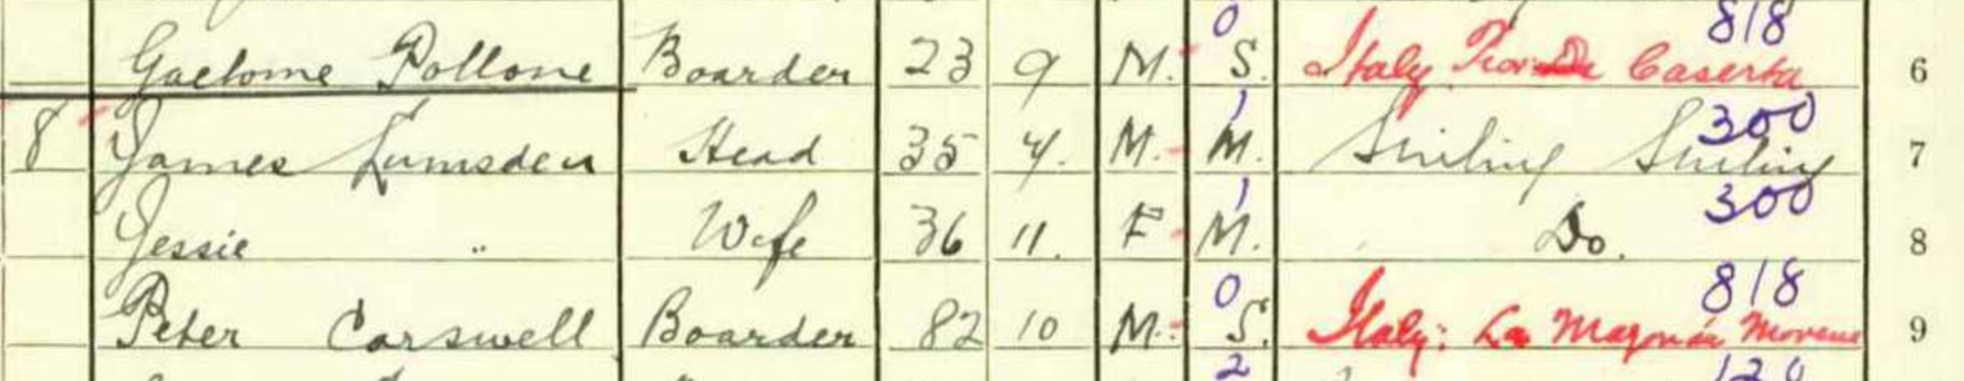 Gaetome Pollone Boarder 23 9 M. 0 S. Italy Caserta 818 6
8 James Lumsden Head 35 4. M. 1 M. Stirling Stirling 300 7
Jessie " Wife 36 11. F 1 M. Do. 300 8
Peter Carswell Boarder 82 10 M. 0 S. Italy: La 818 9
2